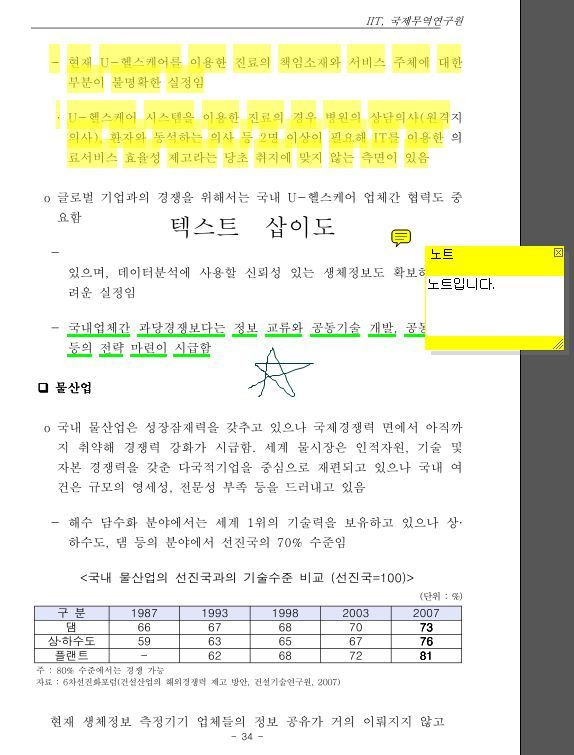 IIT, 국제무역연구원
- 현재 U-헬스케어를 이용한 진료의 책임소재와 서비스 주체에 대한
부분이 불명확한 실정임
· U-헬스케어 시스템을 이용한 진료의 경우 병원의 상담의사(원격지
의사), 환자와 동석하는 의사 등 2명 이상이 필요해 IT를 이용한 의
료서비스 효율성 제고라는 당초 취지에 맞지 않는 측면이 있음
o 글로벌 기업과의 경쟁을 위해서는 국내 U-헬스케어 업체간 협력도 중
요함
텍스트 삽이도
-
있으며, 데이터분석에 사용할 신뢰성 있는 생체정보도 확보하
려운 실정임
노트
노트입니다.
- 국내업체간 과당경쟁보다는 정보 교류와 공동기술 개발, 공동
등의 전략 마련이 시급함
❑ 물산업
o 국내 물산업은 성장잠재력을 갖추고 있으나 국제경쟁력 면에서 아직까
지 취약해 경쟁력 강화가 시급함. 세계 물시장은 인적자원, 기술 및
자본 경쟁력을 갖춘 다국적기업을 중심으로 재편되고 있으나 국내 여
건은 규모의 영세성, 전문성 부족 등을 드러내고 있음
- 해수 담수화 분야에서는 세계 1위의 기술력을 보유하고 있으나 상·
하수도, 댐 등의 분야에서 선진국의 70% 수준임
<국내 물산업의 선진국과의 기술수준 비교 (선진국=100)>
(단위 : %)
구 분 1987 1993 1998 2003 2007
댐 66 67 68 70 73
상·하수도 59 63 65 67 76
플랜트 - 62 68 72 81
주 : 80% 수준에서는 경쟁 가능
자료 : 6차선진화포럼(건설산업의 해외경쟁력 제고 방안, 건설기술연구원, 2007)
현재 생체정보 측정기기 업체들의 정보 공유가 거의 이뤄지지 않고
- 34 -